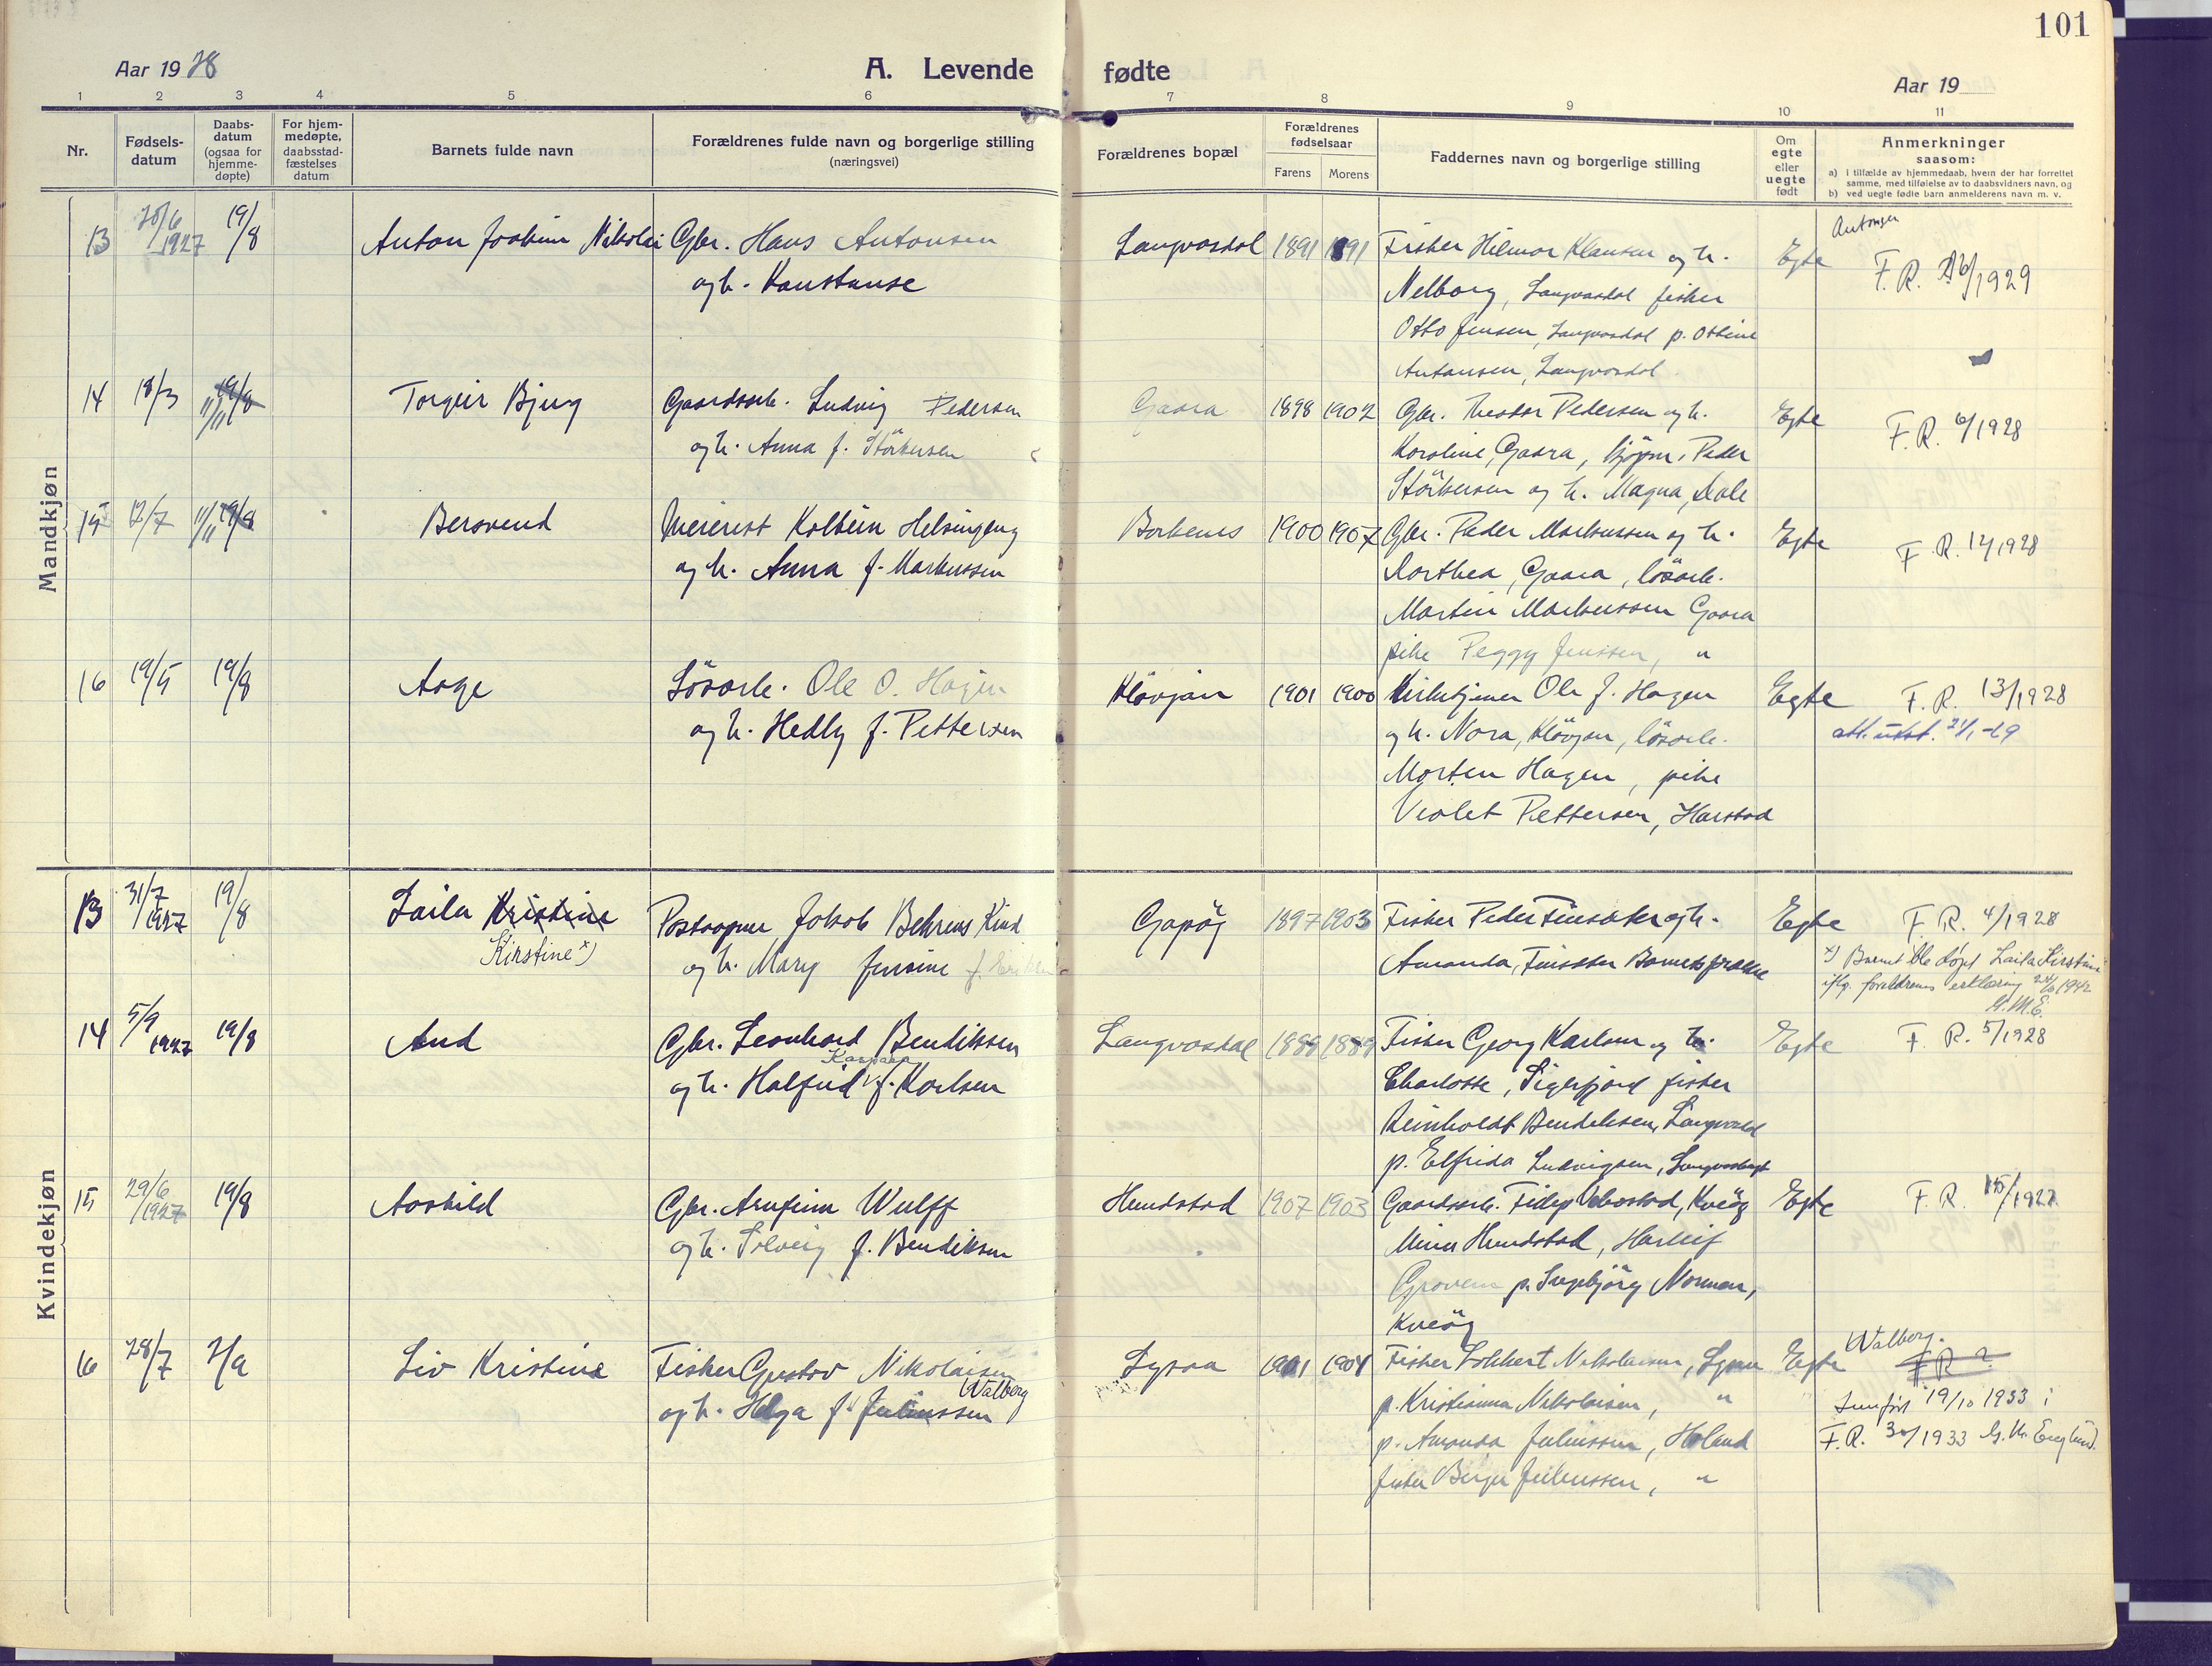 101
Aar 1928
A. Levende fødte
Aar 19
1 2 3 4 5 6 7 8 9 10 11
Nr.
Fødsels-
datum
Daabs-
datum
(ogsaa for
hjemme-
døpte)
For hjem-
medøpte,
daabsstad-
fæstelses
datum
Barnets fulde navn
Forældrenes fulde navn og borgerlige stilling
(næringsvei)
Forældrenes bopæl
Forældrenes
fødselsaar
Farens Morens
Faddernes navn og borgerlige stilling
Om
egte
eller
uegte
født
Anmerkninger
saasom:
a) i tilfælde av hjemmedaab, hvem der har forrettet
samme, med tilføielse av to daabsvidners navn, og
b) ved uegte fødte barn anmelderens navn m. v.
Mandkjøn
13 1927 19/8 Anton Joakim Nikolai Gbr. Hans Antonsen Langvasdal 1891 1891 Fisker Hilmar Klausen og h. Egte Antonsen
og h. Konstanse Nelborg, Langvasdal fisker F. R. /1929
Otto Jensen, Langvasdal p. Ottine
Antonsen, Langvasdal
14 18/3 19/8 11/11 Torgeir Bjug Gaardsarb. Ludvig Pedersen Gaara 1898 1902 Gbr. Theodor Pedersen og h. Egte F. R. 6/1928
og h. Anna f. Störkersen Karoline, Gaara, Peder
Störkersen og h. Magna, Dale
15 12/7 11/11 19/8 Bersvend Meierest Kolbein Helsingeng Borkenes 1900 1907 Gbr. Peder Markussen og h. Egte F. R. 12/1928
og h. Anna f. Markussen Dorthea, Gaara, lösarb.
Martin Markussen Gaara
pike Peggy Jenssen, "
16 19/5 19/8 Aage Lösarb. Ole O. Hagen Klövjan 1901 1900 Kirketjener Ole J. Hagen Egte F. R. 13/1928
og h. Hedly f. Pettersen og h. Nora, Klövjan, lösarb. att. utst.
Morten Hagen, pike
Violet Pettersen, Harstad
Kvindekjøn
13 31/7 1927 19/8 Laila Kristine Postaapner Jakob Behrens Kind Gapöy 1897 1903 Fisker Peder Finsæter og h. Egte F. R. 4/1928
Kirstine x) og h. Mary Jensine f. Amanda, Finsæter x) Barnet ble døpt Laila Kirstine
iflg. foreldrenes erklæring 1942
14 5/9 1927 19/8 Aud Gbr. Leonhard Bendiksen Langvasdal 1889 1889 Fisker Georg Karlsen og h. Egte F. R. 5/1928
Kaspara
og h. Halfrid f. Karlsen Charlotte, Sigerfjord fisker
Reinholdt Bendiksen, Langvasdal
p. Elfrida Ludvigsen,
15 29/6 1927 19/8 Aashild Gbr. Arnfinn Wulff Hundstad 1907 1903 Gaardsarb. Kveöy Egte F. R. 15/1927
og h. Solveig f. Bendiksen Hundstad, Harleif
p. Ingebjörg Norman,
Kveöy
16 28/7 2/9 Liv Kristine Fisker Gustav Nikolaisen Lysaa 1901 1904 Fisker Lokkert Nikolaisen, Lysaa Egte Walborg.
Walborg F R ?
og h. Helga f. Juliussen p. Kristianna Nikolaisen, " Innført 19/10 1933 i
p. Amanda Juliussen, Haland F. R. 30/1933
fisker Birger Juliussen, "